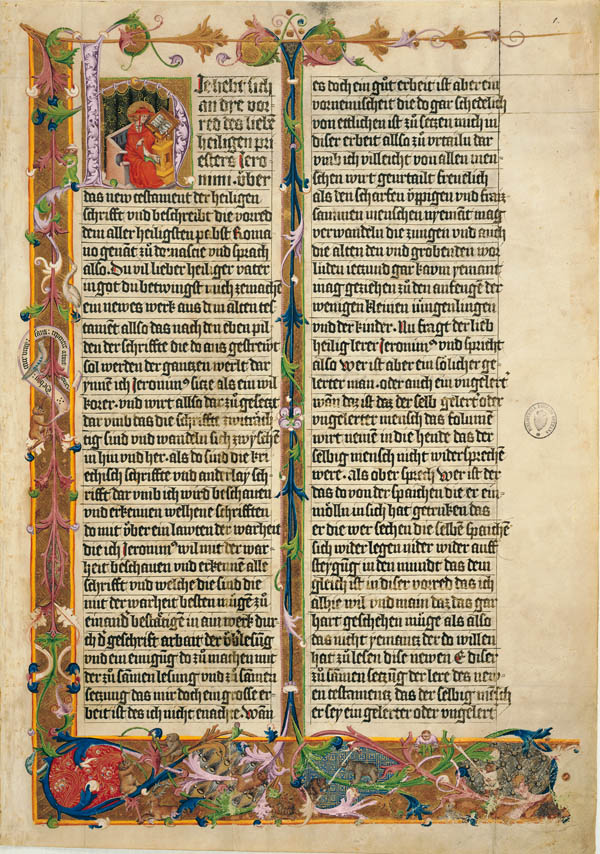 1.
Hie hebt sich
an dye vor
red des liebē
heiligen pri
esters Jero
nimi. über
das new testament der heiligen
schrifft vnd beschreibt die vored
dem aller heiligsten pabst Roma
no genāt zů demascie vnd sprach
also. Du vil lieber heiliger vater
in got du betwingst mich zemachē
ein newes werk aus dem alten tes
tamēt allso das nach den eben pil
den der schriffte die do aus gestreẅt
sol werden der gantzen werlt dar
ynnē ich Jeronimꝰ sitze als ein wil
korer. vnd wirt allso dar zů gesetzt
dar vmb das die schrifft zwiträch
tig sind vnd wandeln sich zwyschē
in hin vnd her. als do sind die kri
echisch schrifft vnd anderlay sch
rifft dar vmb ich wird beschauen
vnd erkennen welhene schrifften
do mit über ein lawten der warheit
die ich Jeronimꝰ wil mit der war
heit beschauen vnd erkennē alle
schrifft vnd welche die sind die
mit der warheit besten mügē zů
ein and' bestätigē in ain werk dur
ch d' geschrift arbait der öblesūg
vnd ein einigūg do zů machen mit
der zů samen lesung vnd zů samen
setzung das mir doch ein grosse er
beit ist des ich nicht enachte. Wān
es doch ein gůt erbeit ist aber ein
vornemischeit die do gar schedelich
von ettlichen ist zů setzen mich in
diser erbeit allso zů vrtailn dar
vmb ich villeicht von allen men
schen wirt geurtailt freuelich
als den scharfen üppigen vnd franz
samnen menschen nyemāt mag
verwandeln die zungen vnd auch
die alten den vnd grobenden wor
luden ietzund gar kavm yemant
mag geziehen zů den anfenge der
wenigen kleinen iungenlingen
vnd der kinder. Nu fragt der lieb
heilig lerer Jeronimꝰ vnd spricht
also Wer ist aber ein sölicher ge
lerter man. oder auch ein vngelert'
wan daz ist daz der selb gelert oder
vngelerter mensch das folumē
wirt nemen in die hende das der
selbig mensch nicht widersprechē
were. als ober sprech wer ist der
das do von der spaichen die er ein
mölln in sich hat getruken das
er die wer sechen die selbē spaichē
sich wider legen nider wider auff
steygūg in den mundt das dem
gleich ist in diser vorred das ich
alhie wil vnd main daz das gar
hart geschehen müge als also
das nicht yemantz der do willen
hat zů lesen dise newen E diser
zů samen setzūg der lere des new
en testamentz das der selbig mēsch
er sey ein gelerter oder vngelert